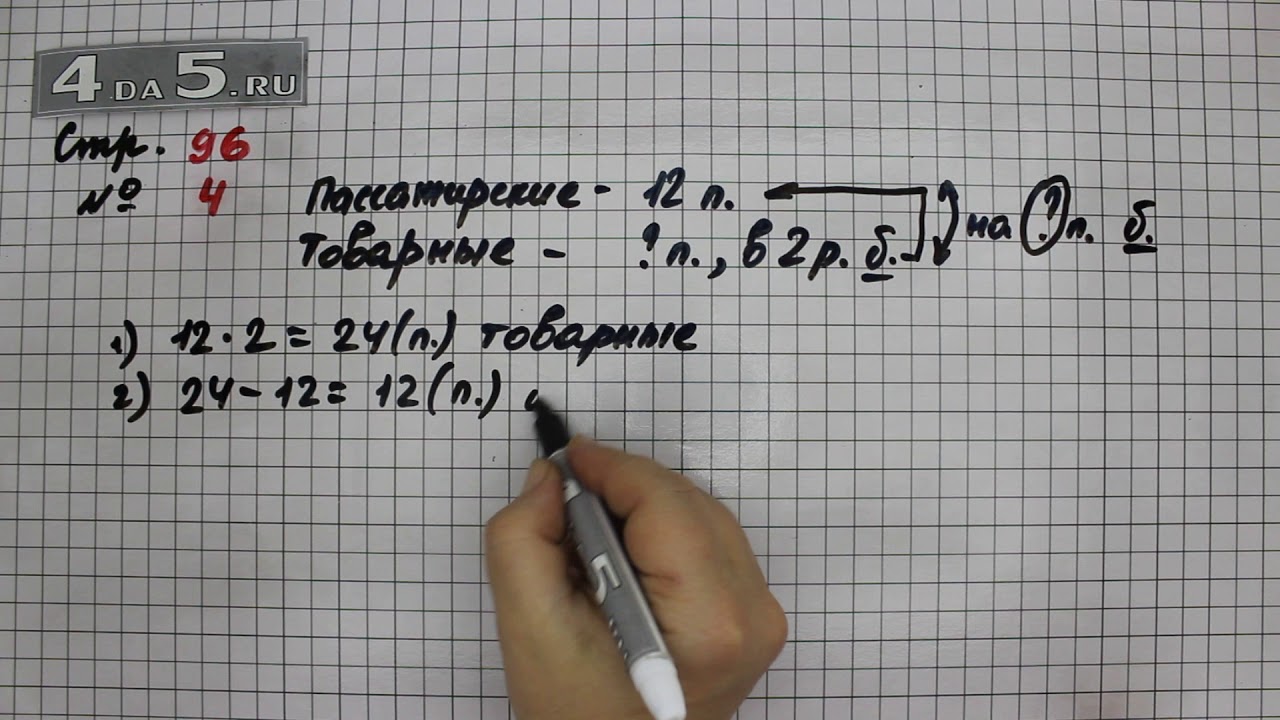 4DA5.RU
Стр. 96
№ 4
Пассажирские - 12 п.
Товарные - ? п., в 2 р. б. на ? п. б.
1) 12 · 2 = 24 (п.) товарные
2) 24 - 12 = 12 (п.)
5